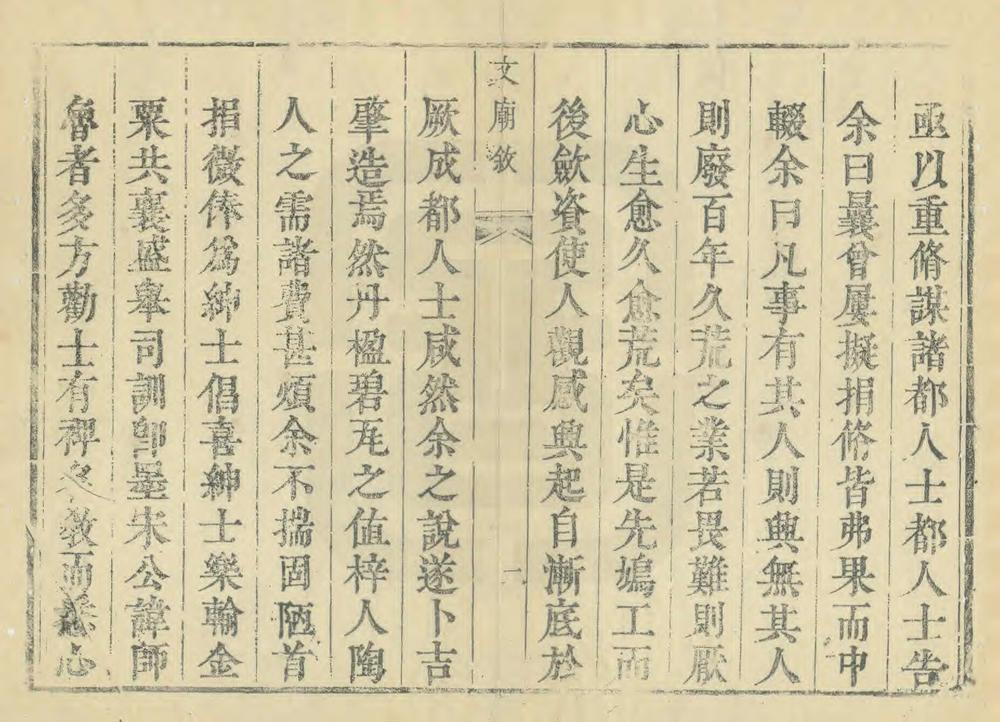 亟以重脩謀諸都人士都人士告
余曰曩曾屢擬捐脩皆弗果而中
輟余曰凡事有其人則興無其人
則廢百年久荒之業若畏難則厭
心生愈久愈荒矣惟是先鳩工而
後歛資使人觀感興起自漸底於
文廟敘
一
厥成都人士咸然余之說遂卜吉
肇造焉然丹楹碧瓦之值梓人陶
人之需諸費甚煩余不揣固陋首
捐微俸為紳士倡喜紳士樂輸金
粟共襄盛舉司訓郎墨宋公諱師
魯者多方勸士有裨 教而悉心